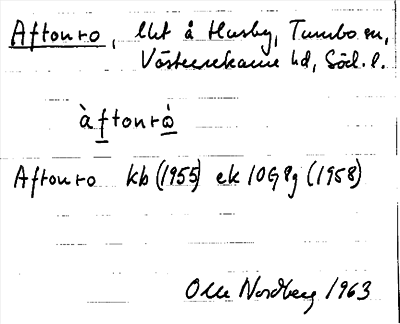 Aftonro, lht å Husby, Tumbo sn,
Västerrekarne hd, Södl. l.
àftonrò
Aftonro kb (1955) ek 10G8g (1958)
Olle Nordberg 1963